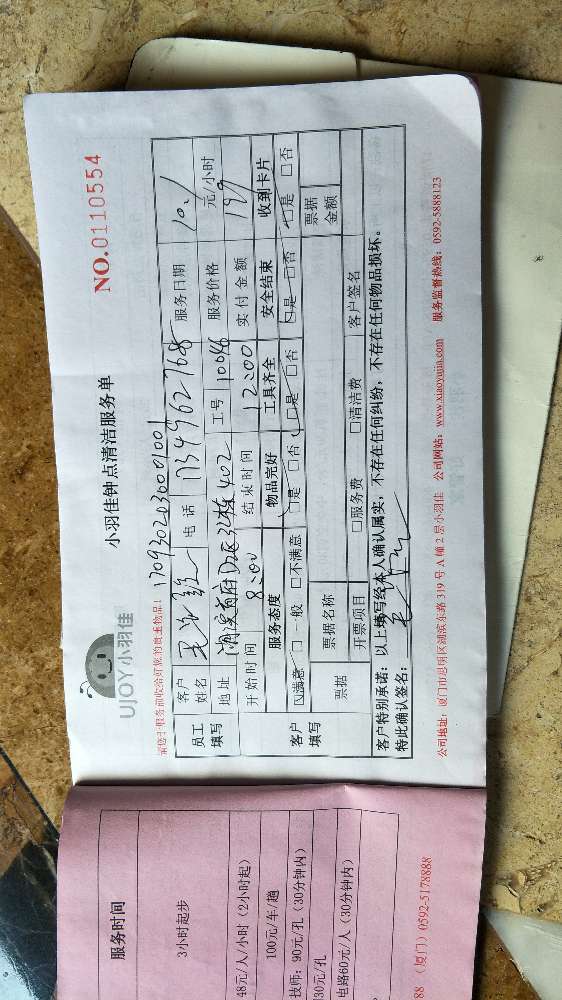 UJOY小羽佳
小羽佳钟点清洁服务单
NO.0110554
1709302030001001
员工填写
客户姓名
电话 17349962768
服务日期 10.1
地址
402
工号 10046
服务价格 元/小时
开始时间 8:00
结束时间 12:00
实付金额 199
客户填写
服务态度 物品完好 工具齐全 安全结束 收到卡片
☑满意 □一般 □不满意 ☑是 □否 ☑是 □否 ☑是 □否 ☑是 □否
票据
票据名称
票据金额
开票项目 □服务费 □清洁费 客户签名
客户特别承诺：以上填写经本人确认属实，不存在任何纠纷，不存在任何物品损坏。
特此确认签名：
公司地址：厦门市思明区湖滨东路 319 号 A 幢 2 层小羽佳 公司网站：www.xiaoyujia.com 服务监督热线：0592-5888123
服务时间
3小时起步
48元/人/小时（2小时起）
100元/车/趟
技师：90元/孔（30分钟内）
30元/孔
电路60元/人（30分钟内）
88 （厦门）0592-5178888